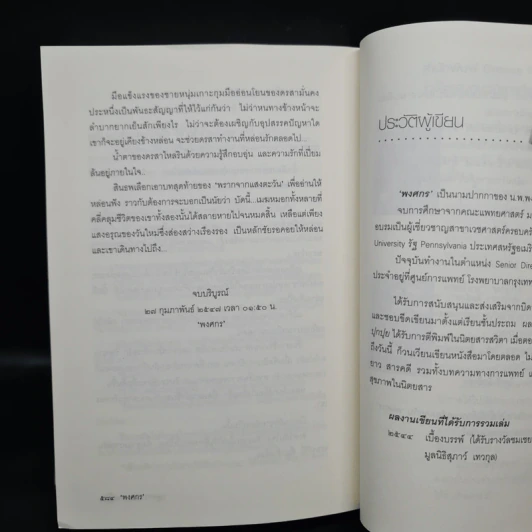 มือแข็งแรงของชายหนุ่มเกาะกุมมืออ่อนโยนของดรสามั่นคง
ประหนึ่งเป็นพันธะสัญญาที่ให้ไว้แก่กันว่า ไม่ว่าหนทางข้างหน้าจะ
ลำบากยากเย็นสักเพียงไร ไม่ว่าจะต้องเผชิญกับอุปสรรคปัญหาใด
เขาก็จะอยู่เคียงข้างหล่อน จะช่วยดรสาทำงานที่หล่อนรักตลอดไป...
น้ำตาของดรสาไหลรินด้วยความรู้สึกอบอุ่น และความรักที่เปี่ยม
ล้นอยู่ภายในใจ...
สินธพเลือกเอาบทสุดท้ายของ 'พรากจากแสงตะวัน' เพื่ออ่านให้
หล่อนฟัง ราวกับต้องการจะบอกเป็นนัยว่า บัดนี้...เมฆหมอกทั้งหลายที่
คลี่คลุมชีวิตของเขาทั้งสองนั้นได้สลายหายไปจนหมดสิ้น เหลือแต่เพียง
แสงอรุณของวันใหม่ซึ่งส่องสว่างเรืองรอง เป็นหลักชัยรอคอยให้หล่อน
และเขาเดินทางไปถึง...
จบบริบูรณ์
๒๗ กุมภาพันธ์ ๒๕๔๗ เวลา ๐๑:๕๐ น.
'พงศกร'
๕๘๘ 'พงศกร'
ประวัติผู้เขียน
'พงศกร' เป็นนามปากกาของ น.พ.พง
จบการศึกษาจากคณะแพทยศาสตร์ ม
อบรมเป็นผู้เชี่ยวชาญสาขาเวชศาสตร์ครอบครั
University รัฐ Pennsylvania ประเทศสหรัฐอเมริ
ปัจจุบันทำงานในตำแหน่ง Senior Dire
ประจำอยู่ที่ศูนย์การแพทย์ โรงพยาบาลกรุงเทพ
ได้รับการสนับสนุนและส่งเสริมจากบิด
และชอบขีดเขียนมาตั้งแต่เรียนชั้นประถม ผล
ปุกปุย ได้รับการตีพิมพ์ในนิตยสารสวิตา เมื่อตอ
ถึงวันนี้ ก็วนเวียนเขียนหนังสือมาโดยตลอด ไม
ยาว สารคดี รวมทั้งบทความทางการแพทย์ แ
สุขภาพในนิตยสาร
ผลงานเขียนที่ได้รับการรวมเล่ม
๒๕๔๔ เบื้องบรรพ์ (ได้รับรางวัลชมเชย
มูลนิธิสุภาว์ เทวกุล)